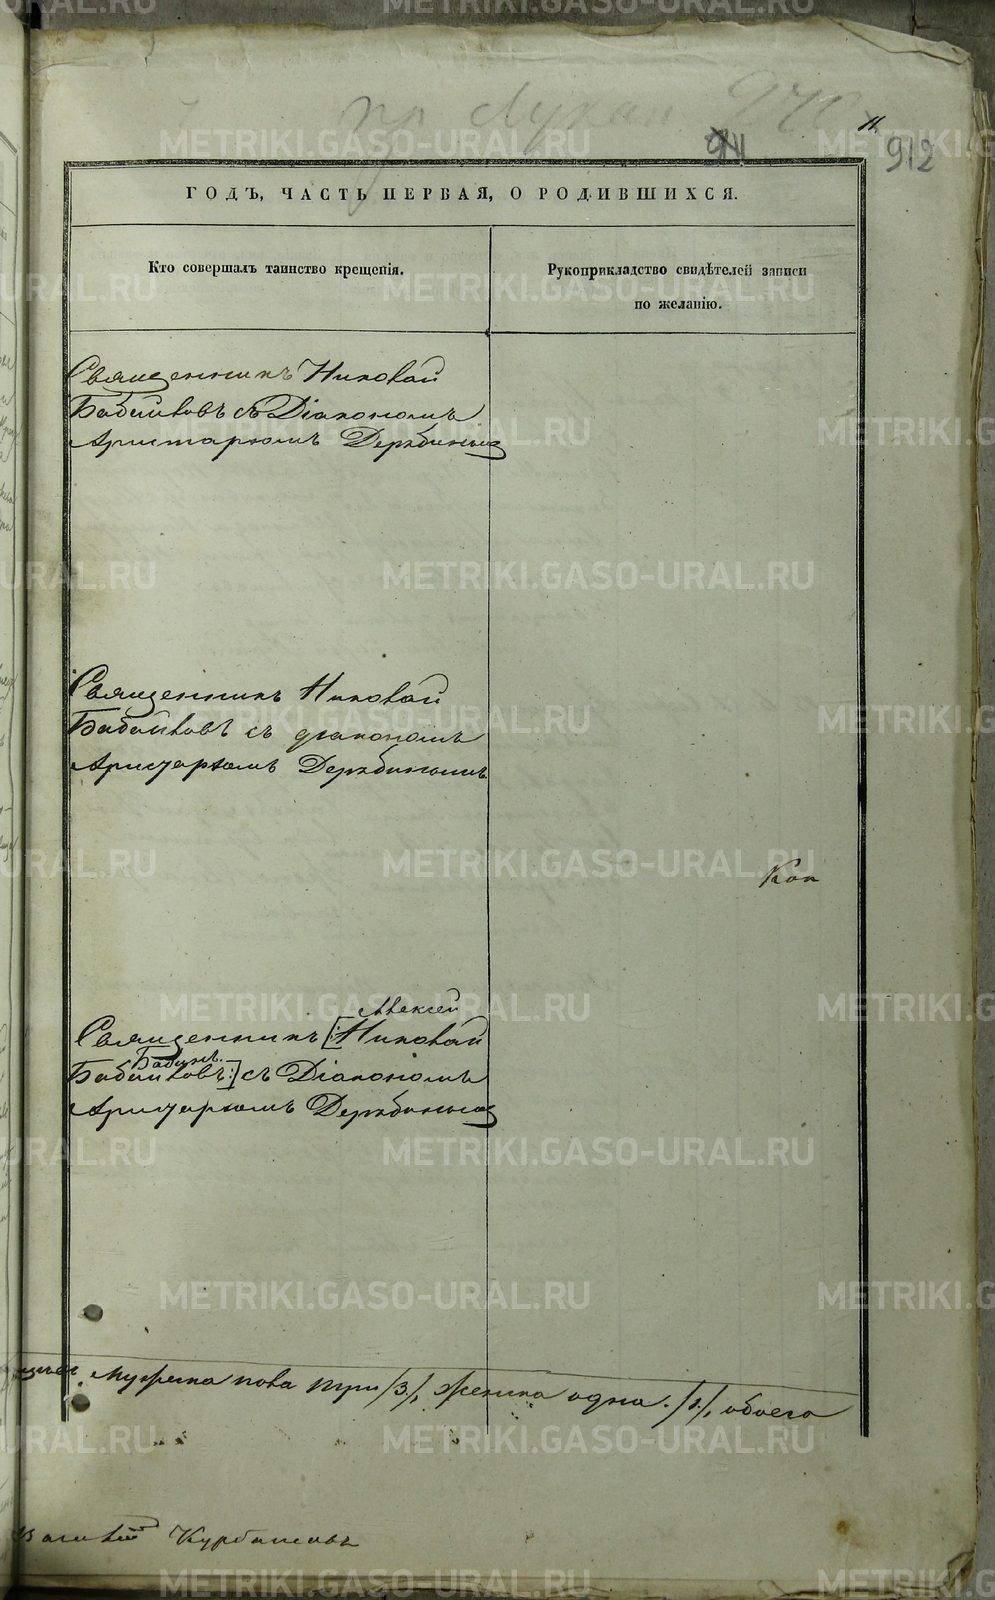 11
912
ГОДЪ, ЧАСТЬ ПЕРВАЯ, О РОДИВШИХСЯ.
Кто совершалъ таинство крещенія.
Рукоприкладство свидѣтелей записи
по желанію.
Священникъ Николай
Бабайловъ съ Діакономъ
Аристархомъ Дерябинымъ
Священникъ Николай
Бабайловъ съ діакономъ
Аристархомъ Дерябинымъ
Алексей
Священникъ [Николай
Бабинъ.
Бабайловъ:] съ Діакономъ
Аристархомъ Дерябинымъ
Коп
мужеска пола три /3/, женска одна. /1/, обоего
Василій Курбатовъ
METRIKI.GASO-URAL.RU